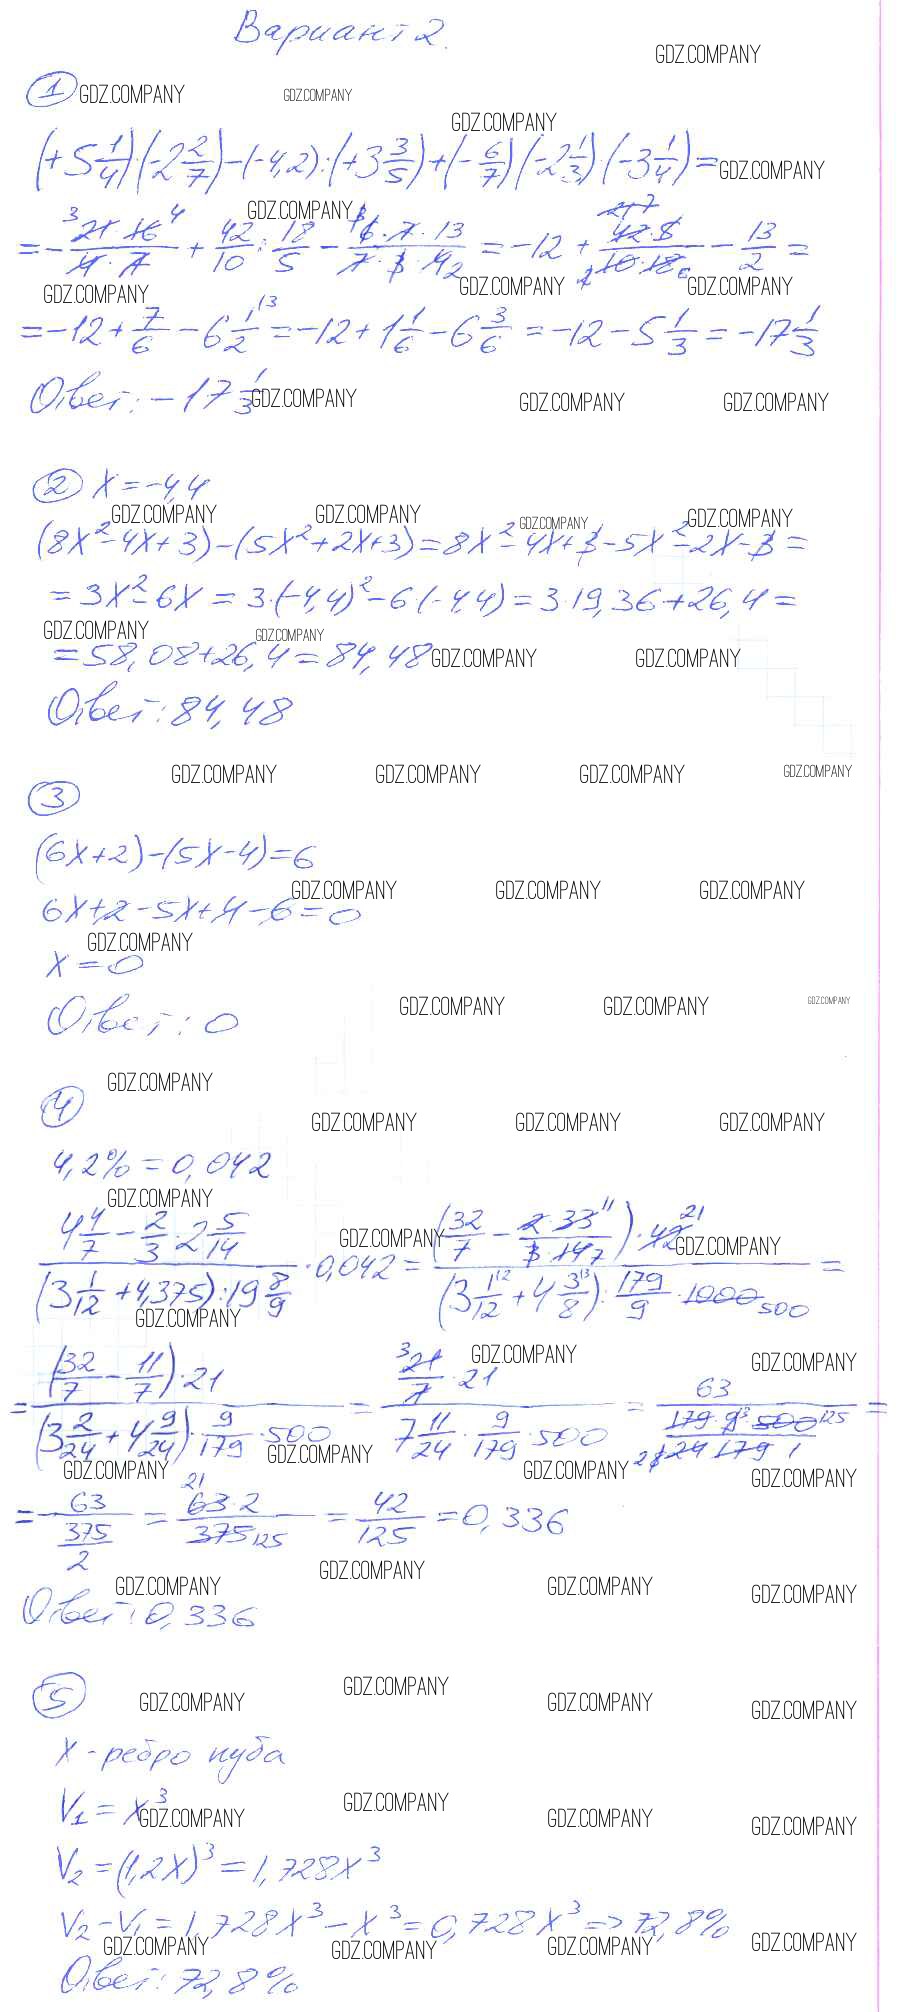 Вариант 2.
GDZ.COMPANY
1 GDZ.COMPANY GDZ.COMPANY
GDZ.COMPANY
(+5 1/4)·(-2 2/7)-(-4,2):(+3 3/5)+(-6/7)(-2 1/3)·(-3 1/4)= GDZ.COMPANY
GDZ.COMPANY
=-(21·16)/(4·7)+42/10:18/5-(6·7·13)/(7·3·4)=-12+(42·5)/(10·18)-13/2=
GDZ.COMPANY GDZ.COMPANY GDZ.COMPANY
=-12+7/6-6 1/2=-12+1 1/6-6 3/6=-12-5 1/3=-17 1/3
Ответ: -17 1/3 GDZ.COMPANY GDZ.COMPANY GDZ.COMPANY
2 x=-4,4
GDZ.COMPANY GDZ.COMPANY GDZ.COMPANY GDZ.COMPANY
(8x²-4x+3)-(5x²+2x+3)=8x²-4x+3-5x²-2x-3=
=3x²-6x=3·(-4,4)²-6(-4,4)=3·19,36+26,4=
GDZ.COMPANY GDZ.COMPANY
=58,08+26,4=84,48 GDZ.COMPANY GDZ.COMPANY
Ответ: 84,48
GDZ.COMPANY GDZ.COMPANY GDZ.COMPANY GDZ.COMPANY
3
(6x+2)-(5x-4)=6
GDZ.COMPANY GDZ.COMPANY GDZ.COMPANY
6x+2-5x+4-6=0
GDZ.COMPANY
x=0
GDZ.COMPANY GDZ.COMPANY GDZ.COMPANY
Ответ: 0
GDZ.COMPANY
4
GDZ.COMPANY GDZ.COMPANY GDZ.COMPANY
4,2%=0,042
GDZ.COMPANY
(4 4/7-2/3·2 5/14)/((3 1/12+4,375):19 8/9)·0,042=((32/7-(2·33)/(3·14))·42)/((3 1/12+4 3/8):179/9·1000)=
GDZ.COMPANY GDZ.COMPANY
GDZ.COMPANY
GDZ.COMPANY GDZ.COMPANY
=((32/7-11/7)·21)/((3 2/24+4 9/24)·9/179·500)=(21/7·21)/(7 11/24·9/179·500)=63/((179·9·500)/(24·179·1))=
GDZ.COMPANY GDZ.COMPANY GDZ.COMPANY GDZ.COMPANY
=63/(375/2)=(63·2)/375=42/125=0,336
GDZ.COMPANY GDZ.COMPANY GDZ.COMPANY GDZ.COMPANY
Ответ: 0,336
5
GDZ.COMPANY GDZ.COMPANY GDZ.COMPANY GDZ.COMPANY
x - ребро куба
V₁=x³
GDZ.COMPANY GDZ.COMPANY GDZ.COMPANY GDZ.COMPANY
V₂=(1,2x)³=1,728x³
V₂-V₁=1,728x³-x³=0,728x³=>72,8%
GDZ.COMPANY GDZ.COMPANY GDZ.COMPANY GDZ.COMPANY
Ответ: 72,8%